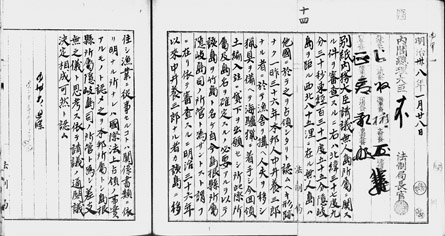 十四
明治三十八年一月廿八日
内閣総理大臣
法制局長官
別紙内務大臣請議無人島所属ニ関ス
ル件ヲ審査スルニ右ハ北緯三十七度九
分三十秒東経百三十一度五十五分隠岐
島ヲ距ル西北八十五浬ニ在ル無人島ハ
他国ニ於テ之ヲ占領シタリト認ムヘキ形跡
ナク一昨三十六年本邦人中井養三郎
ナル者ニ於テ漁舎ヲ構ヘ人夫ヲ移シ
猟具ヲ備ヘテ海驢猟ニ着手シ今回領
土編入並ニ貸下ヲ出願セシ所此際所
属及島名ヲ確定スルノ必要アルヲ以テ
該島ヲ竹島ト名ケ自今島根県所属
隠岐島司ノ所管ト為サントスト謂フ
ニ在リ依テ審査スルニ明治三十六年
以来中井養三郎ナル者カ該島ニ移
法制局
住シ漁業ニ従事セルコトハ関係書類ニ依
リ明ナル所ナルハ国際法上占領ノ事実
アルモノト認メ之ヲ本邦所属トシ島根
県所属隠岐島司ノ所管ト為シ差支
無之儀ト思考ス依テ請議ノ通閣議
決定相成可然ト認ム
法制局